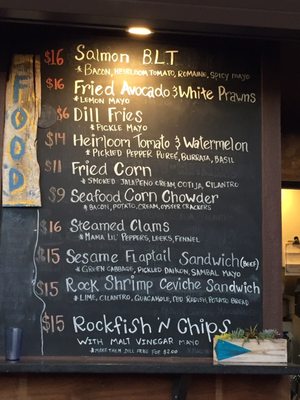 FOOD
$16 Salmon BLT
* Bacon, Heirloom Tomato, Romaine, Spicy Mayo
$16 Fried Avocado & White Prawns
* Lemon Mayo
$6 Dill Fries
* Pickle Mayo
$14 Heirloom Tomato & Watermelon
* Pickled Pepper Pureé, Burrata, Basil
$11 Fried Corn
* Smoked Jalapeno Cream, Cotija, Cilantro
$9 Seafood Corn Chowder
* Bacon, Potato, Cream, Oyster Crackers
$16 Steamed Clams
* Mama Lil' Peppers, Leeks, Fennel
$15 Sesame Flaptail Sandwich (Beef)
* Green Cabbage, Pickled Daikon, Sambal Mayo
$15 Rock Shrimp Ceviche Sandwich
* Lime, Cilantro, Guacamole, Red Radish, Potato Bread
$15 Rockfish 'N Chips
with Malt Vinegar Mayo
* Make them Dill Fries for $2.00